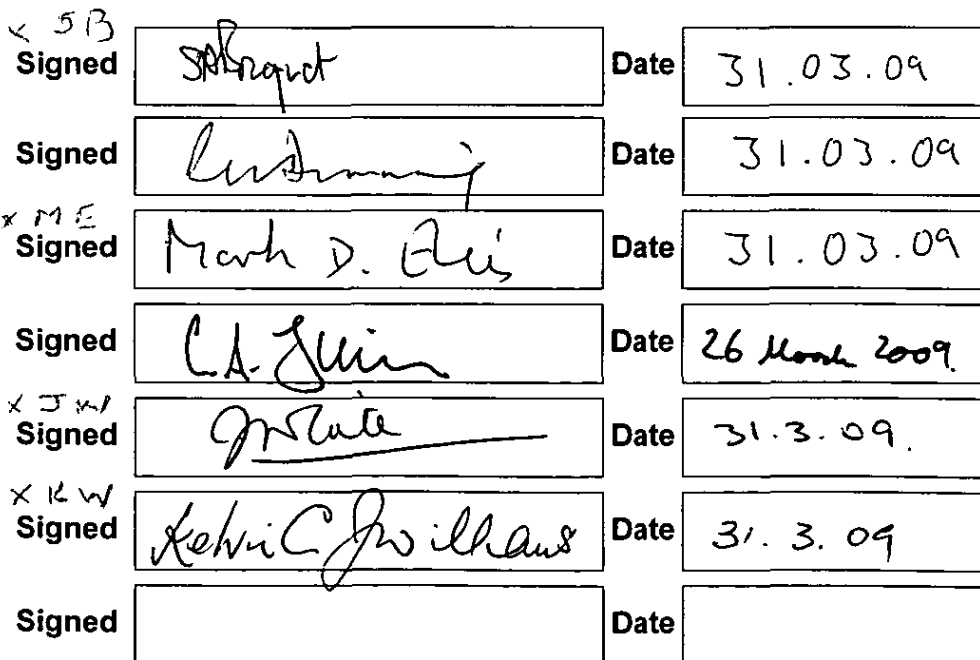 x SB
Signed Date 31.03.09
Signed Date 31.03.09
x ME
Signed Mark D. Ellis Date 31.03.09
Signed C.A. Date 26 March 2009.
x JW
Signed Date 31.3.09.
x KW
Signed Kelvin C Williams Date 31.3.09
Signed Date